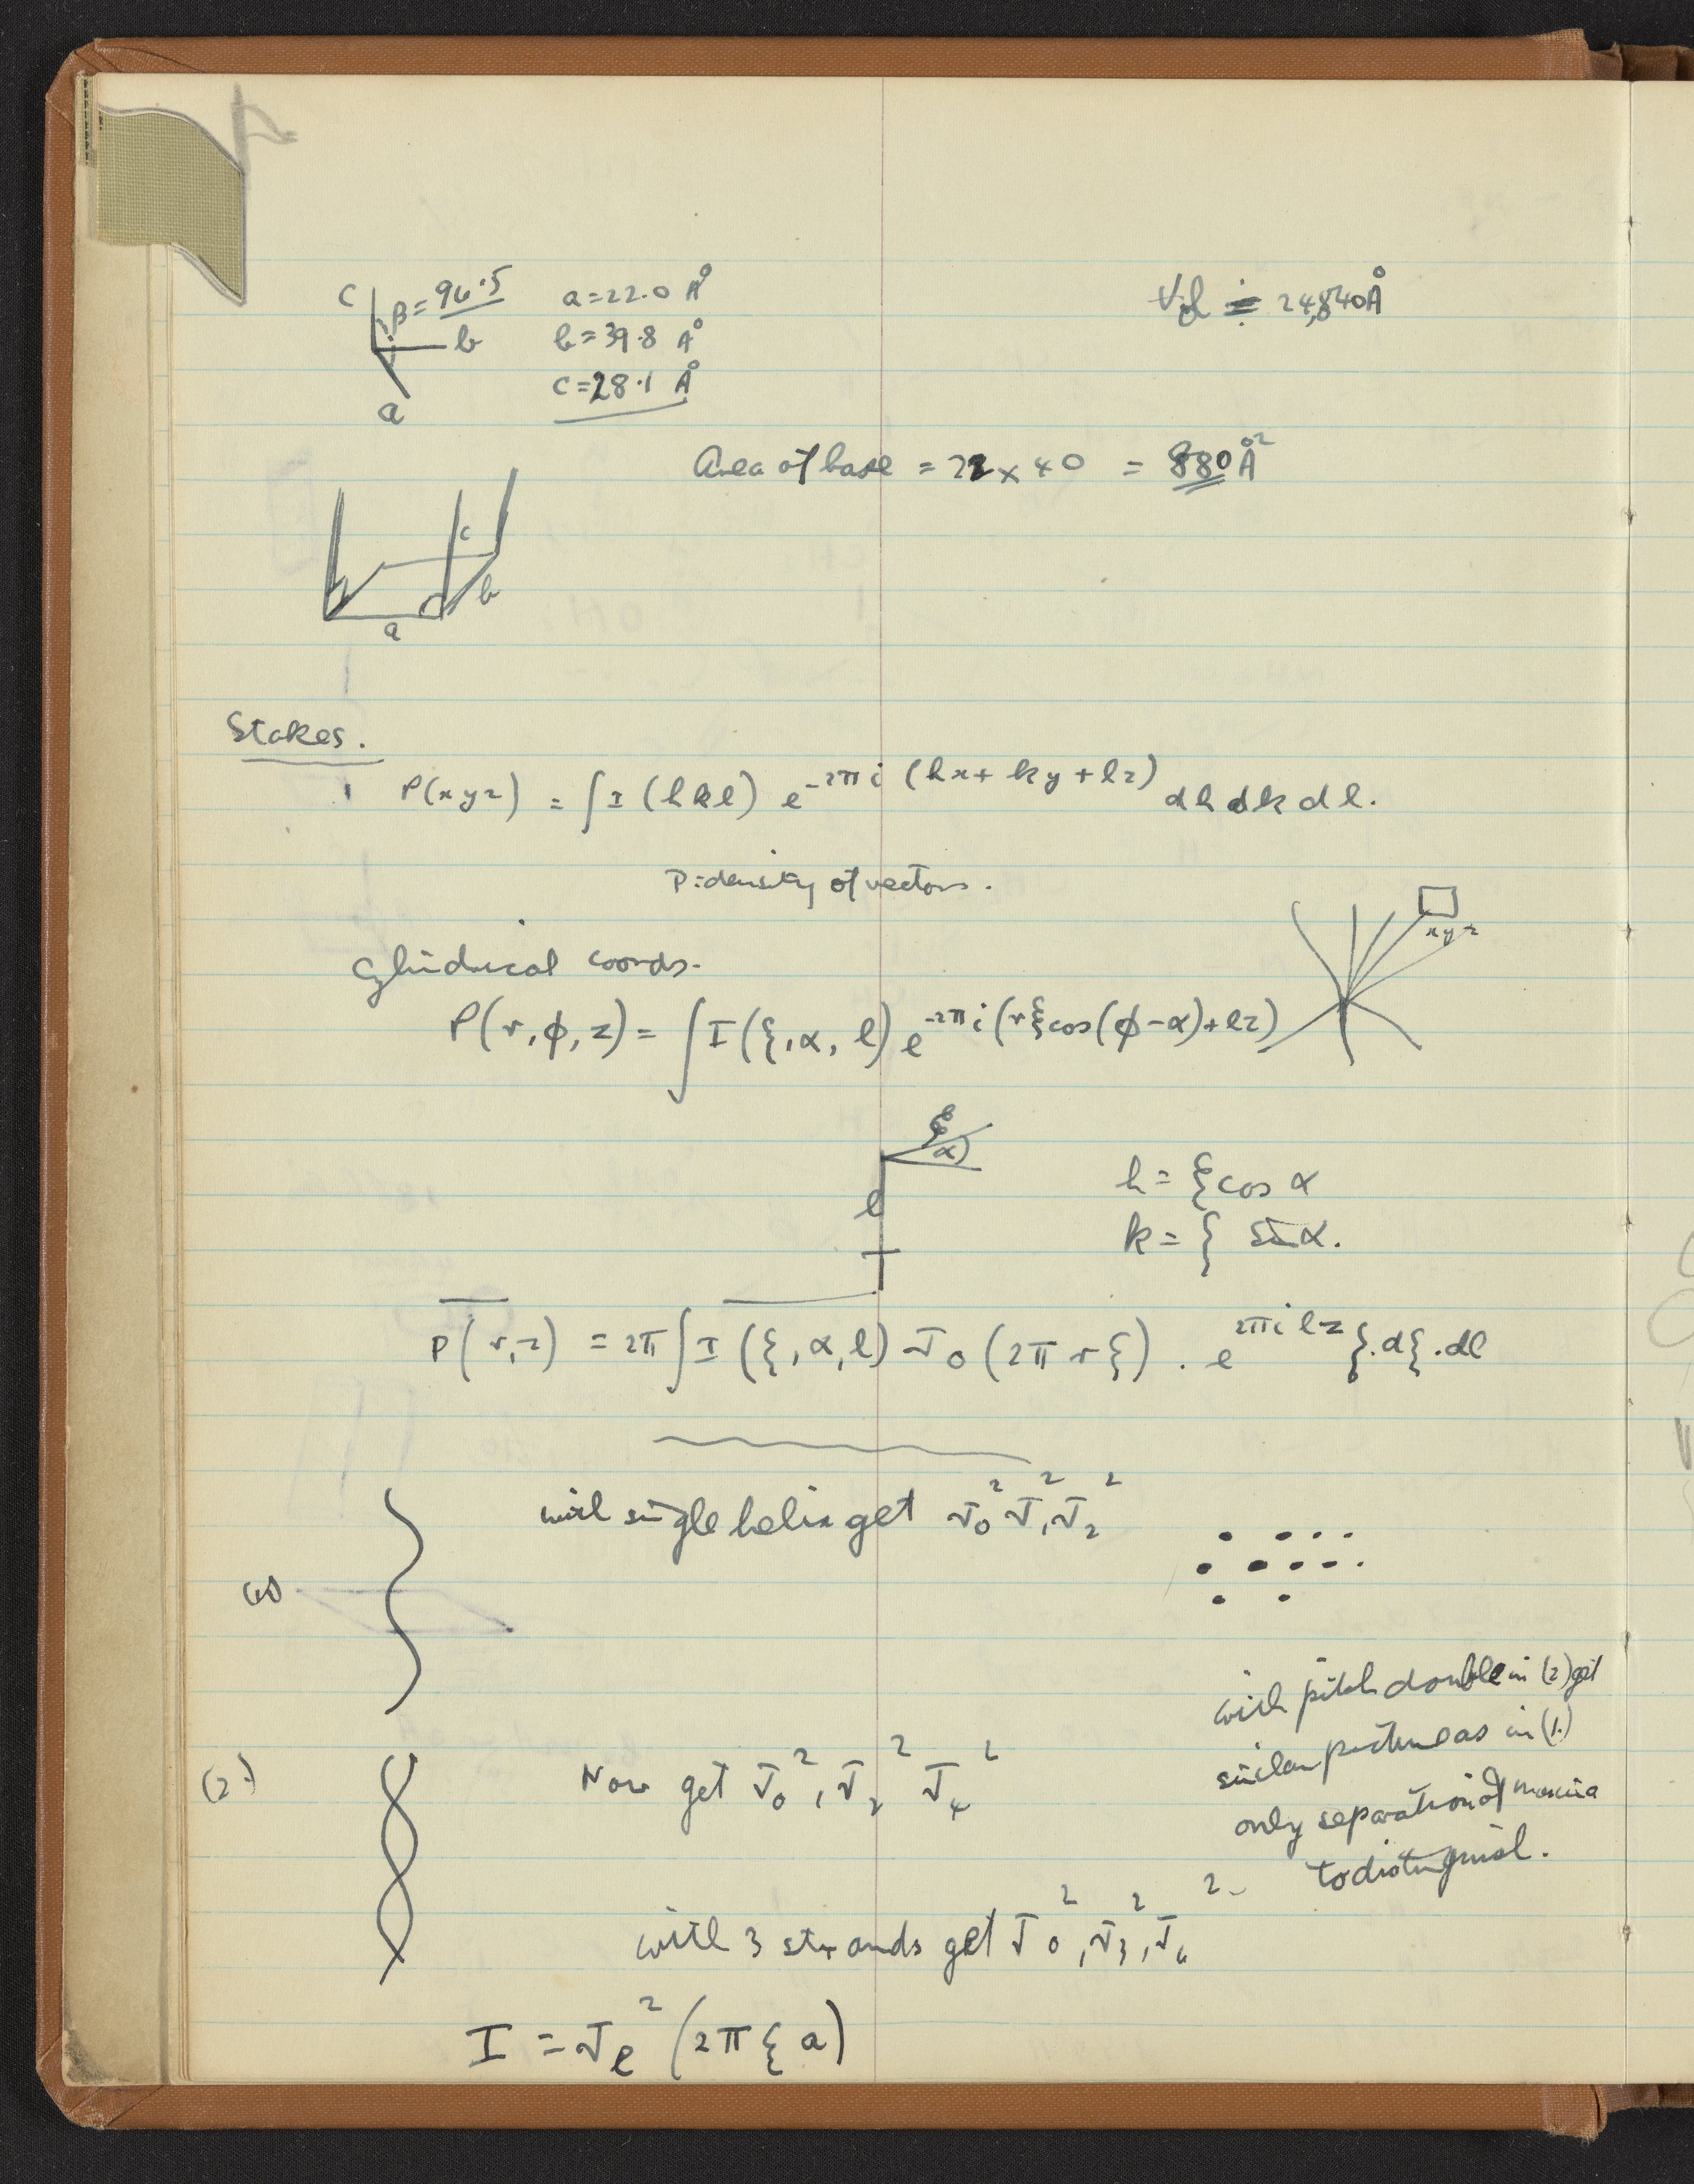 C β = 96·5 a = 22·0 Å Vol ≑ 24,840Å
b b = 39·8 Å
a c = 28·1 Å
Area of base = 22 x 40 = 880 Å²
c
b
a
Stokes.
P(xyz) = ∫ I (hkl) e^{-2πi (hx + ky + lz)} dh dk dl.
P = density of vectors.
xyz
Cylindrical coords.
P(r, φ, z) = ∫ I (ξ, α, l) e^{-2πi (rξ cos(φ-α) + lz)}
ξ
α
l
h = ξ cos α
k = ξ sin α.
P(r, z) = 2π ∫ I (ξ, α, l) J₀ (2π r ξ) . e^{2πi lz} ξ . dξ . dl
with single helix get J₀² J₁² J₂²
(1)
with pitch double in (2) get
similar picture as in (1)
only separation of maxima
to distinguish.
(2.) Now get J₀², J₂² J₄²
with 3 strands get J₀², J₃², J₆²
I = J_l² (2π ξ a)